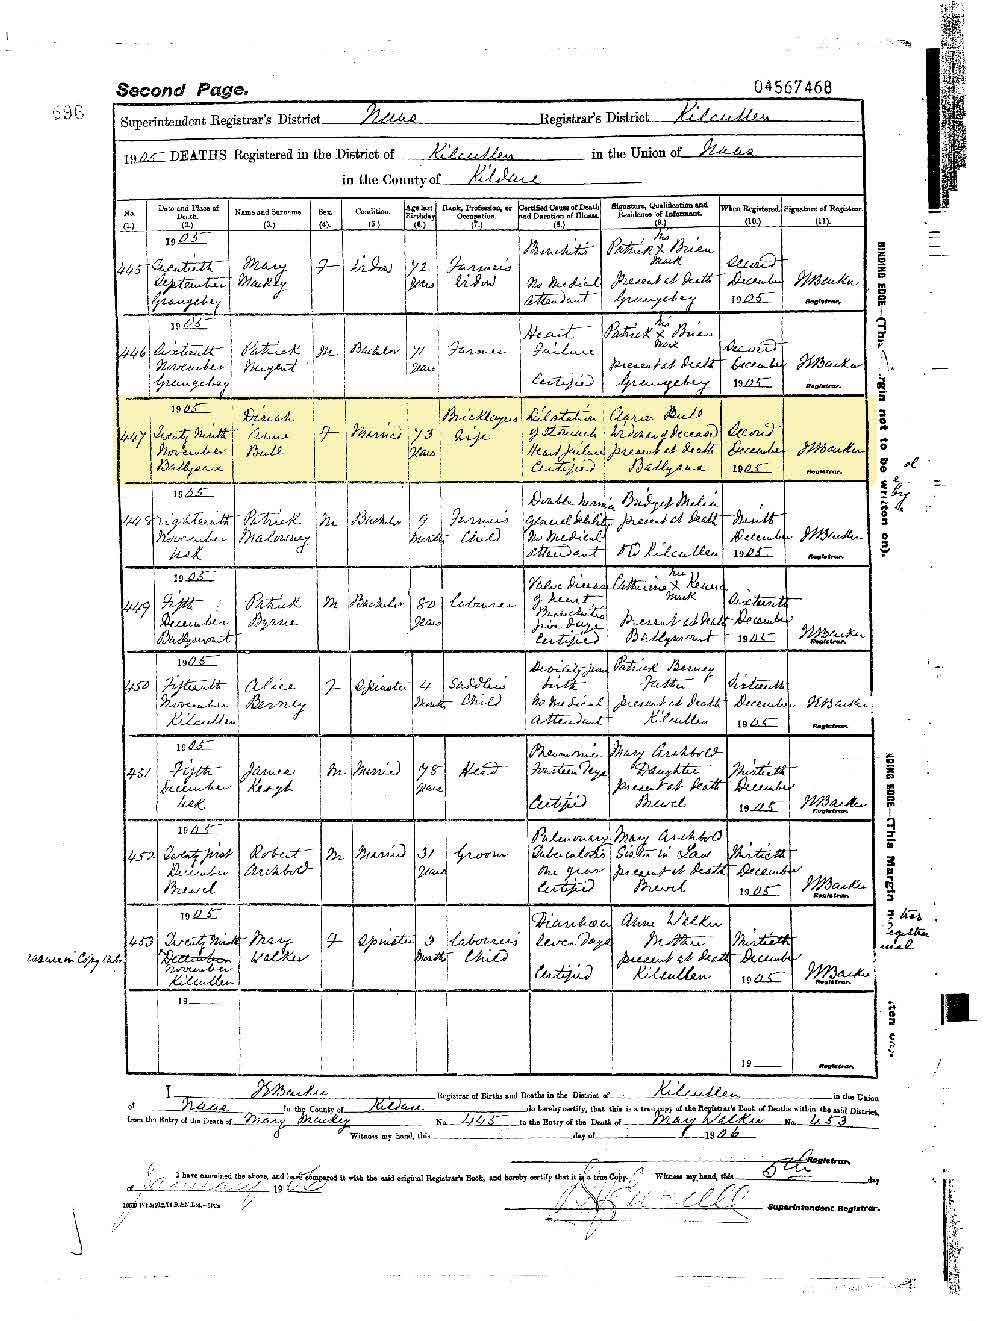 Second Page.
04567468
696
Superintendent Registrar's District Naas Registrar's District Kilcullen
1905 DEATHS Registered in the District of Kilcullen in the Union of Naas
in the County of Kildare
No. (1.) Date and Place of Death. (2.) Name and Surname. (3.) Sex. (4.) Condition. (5.) Age last Birthday. (6.) Rank, Profession, or Occupation. (7.) Certified Cause of Death and Duration of Illness. (8.) Signature, Qualification and Residence of Informant. (9.) When Registered. (10.) Signature of Registrar. (11.)
1905
445 Twentieth September Grangebeg
Mary Mackey
F
Widow
72 years
Farmer's Widow
Bronchitis No Medical attendant
Patrick X Brien his mark Present at death Grangebeg
Second December 1905
Barker Registrar.
1905
446 Sixteenth November Grangebeg
Patrick Nugent
M
Bachelor
71 years
Farmer
Heart Failure Certified
Patrick X Brien his mark present at death Grangebeg
Second December 1905
Barker Registrar.
1905
447 Twenty Ninth November Ballysax
Anne
F
Married
73 years
Bricklayer's Wife
Dilatation of Stomach Heart failure Certified
of deceased present at death Ballysax
Second December 1905
Barker Registrar.
1905
448 Eighteenth November Usk
Patrick
M
Bachelor
9 months
Farmer's Child
Double hernia general debility No Medical attendant
Bridget present at death Kilcullen
Ninth December 1905
Barker Registrar.
1905
449 Fifth December Ballymount
Patrick Byrne
M
Bachelor
80 years
Labourer
Valve Disease of heart Bronchitis five days Certified
Catherine X her mark Present at death Ballymount
Sixteenth December 1905
Barker Registrar.
1905
450 Fifteenth November Kilcullen
Alice Berney
F
Spinster
4 months
Saddler's Child
from birth No Medical attendant
Patrick Berney Father present at death Kilcullen
Sixteenth December 1905
Barker Registrar.
1905
451 Fifth December Usk
James Keogh
M
Married
78 years
Herd
Pneumonia Fourteen days Certified
Mary Archbold Daughter present at death Brewel
Thirtieth December 1905
Barker Registrar.
1905
452 Twenty first December Brewel
Robert Archbold
M
Married
31 years
Groom
Pulmonary Tuberculosis one year Certified
Mary Archbold Sister in Law present at death Brewel
Thirtieth December 1905
Barker Registrar.
1905
453 Twenty Ninth December November Kilcullen
Mary Walker
F
Spinster
3 months
Labourer's Child
Diarrhoea seven days Certified
Anne Walker Mother present at death Kilcullen
Thirtieth December 1905
Barker Registrar.
19
19
Registrar.
BINDING EDGE—(This
rgin not to be written on).
NDING EDGE—(This Margin n
ten on
I Barker Registrar of Births and Deaths in the District of Kilcullen in the Union
of Naas in the County of Kildare do hereby certify, that this is a true copy of the Registrar's Book of Deaths within the said District,
from the Entry of the Death of Mary Mackey No. 445 to the Entry of the Death of Mary Walker No. 453
Witness my hand, this day of 1906
Registrar.
I have examined the above, and have compared it with the said original Registrar's Book, and hereby certify that it is a true Copy. Witness my hand, this 5th day
of January 19
Superintendent Registrar.